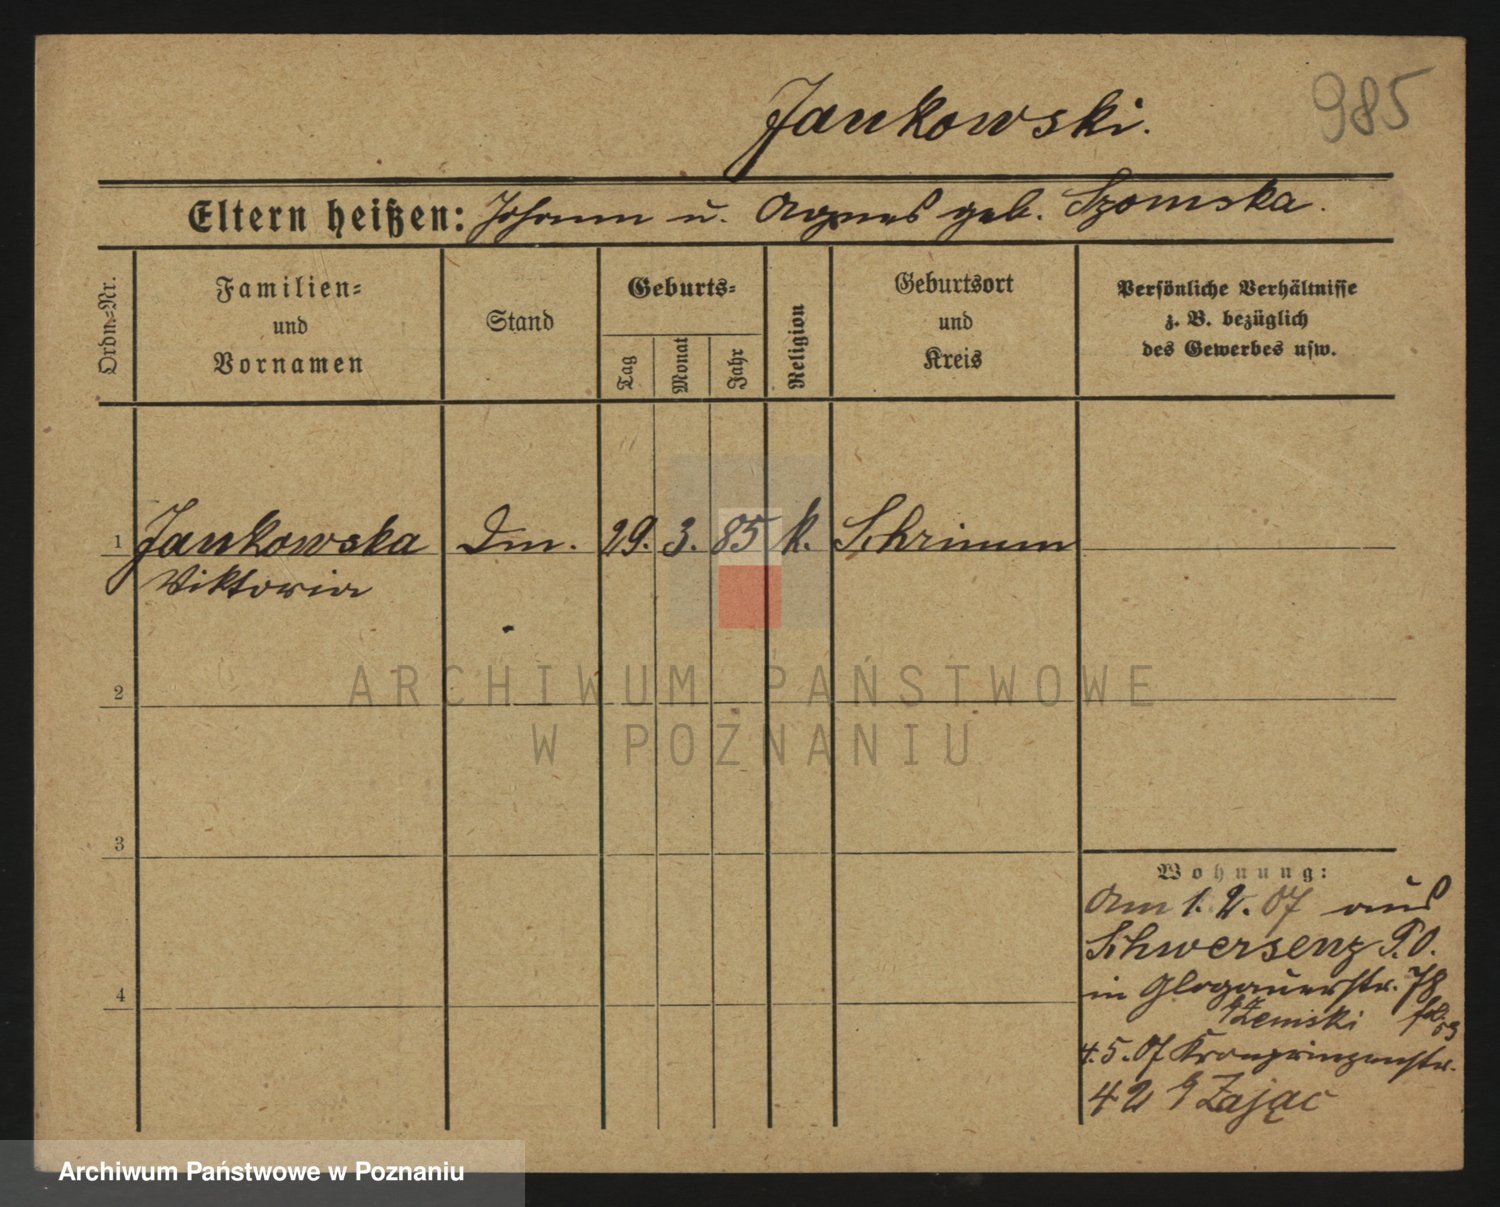 Jankowski.
985
Eltern heißen: Johann u. Agnes geb. Szomska.
Ordn.-Nr.
Familien- und Vornamen
Stand
Geburts-
Tag
Monat
Jahr
Religion
Geburtsort und Kreis
Persönliche Verhältnisse
z. B. bezüglich
des Gewerbes usw.
1 Jankowska Dm. 29. 3. 85 k. Schrimm
Viktoria
2
3
4
Wohnung:
Am 1. 2. 07 aus
Schwersenz P. O.
in Glogauerstr. 78
Ziemski
4. 5. 07 Kronprinzenstr.
42 Zając
ARCHIWUM PAŃSTWOWE
W POZNANIU
Archiwum Państwowe w Poznaniu